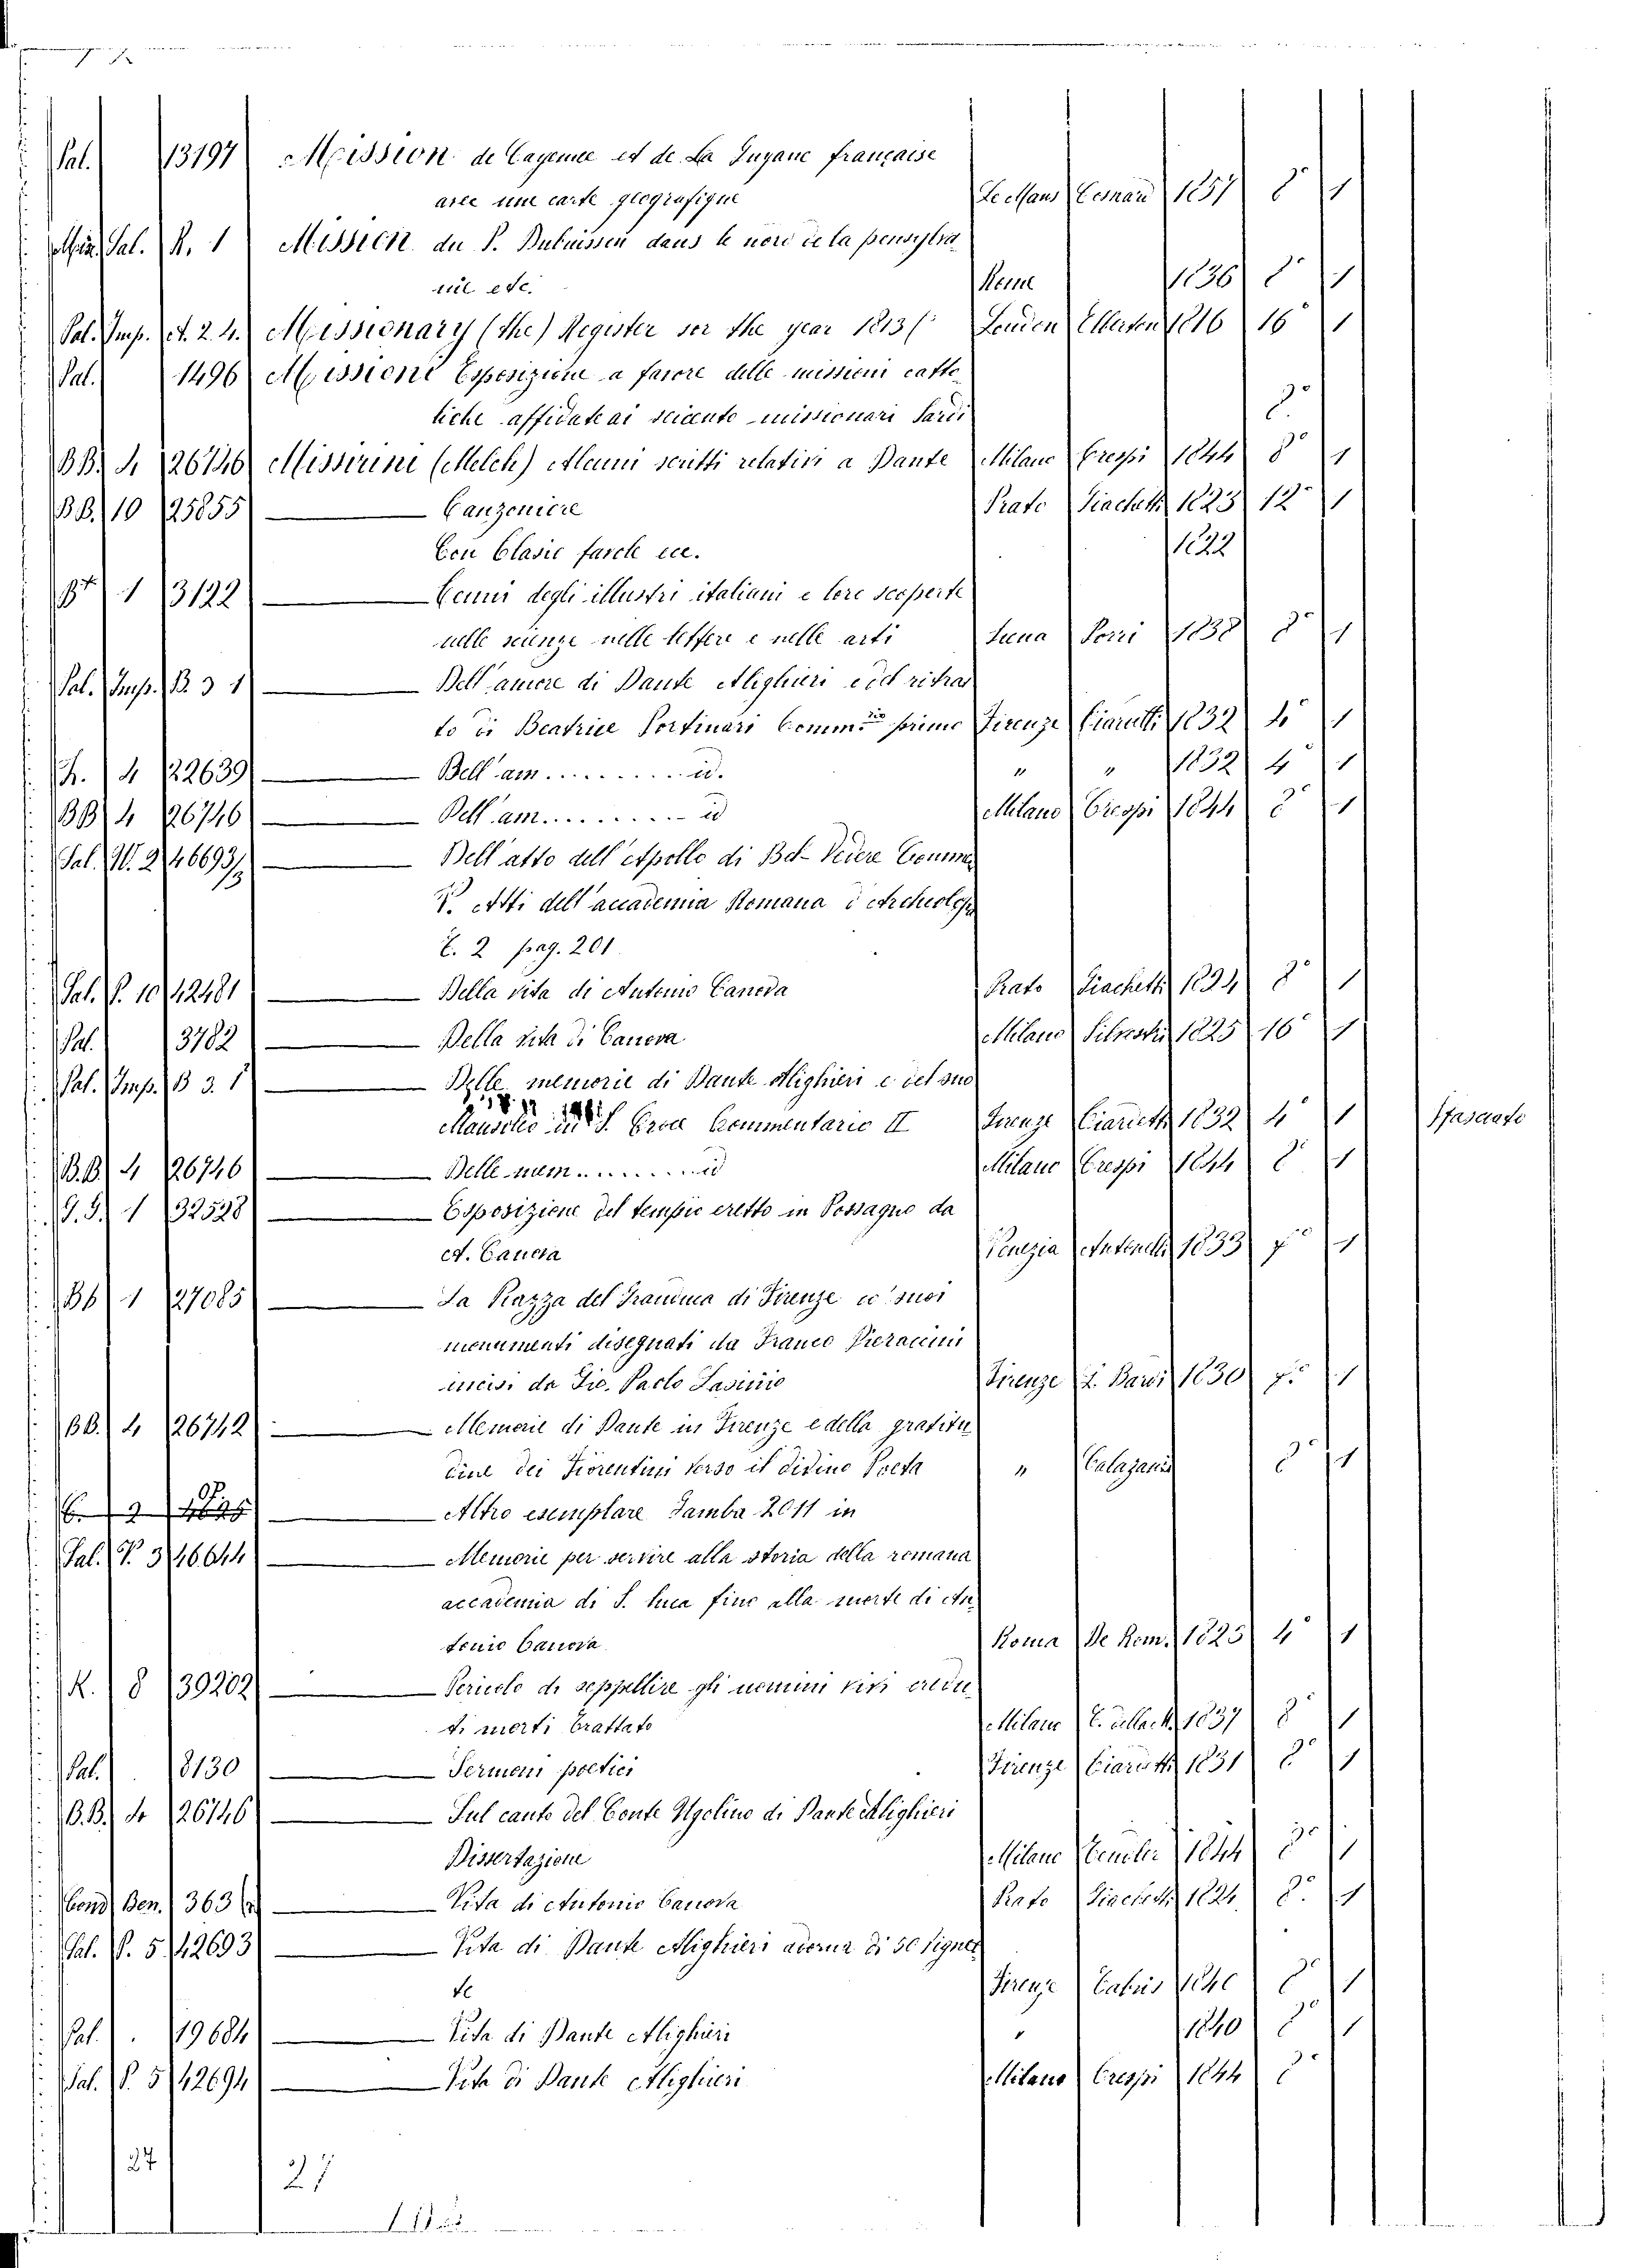 Pal. 13197 Mission de Cayenne et de La Guyane française
avec une carte geografique Le Mans 1857 8° 1
Pal. R. 1 Mission du P. dans le nord de la pensylva
nie etc. Rome 1836 8° 1
Pal. Imp. A. 2. 4. Missionary (the) Register for the year 1813 London Ellerton 1816 16 1
Pal. 1496 Missioni Esposizione a favore delle missioni catto
liche affidate ai missionari Sardi 8°
BB. 4 26746 Missirini (Melch) Alcuni scritti relativi a Dante Milano Crespi 1844 8° 1
B.B. 10 25855 Canzoniere Prato Giachetti 1823 12° 1
Con Clasio farele ecc. 1822
1 3122 Cenni degli illustri italiani e loro scoperte
nelle scienze nelle lettere e nelle arti Siena Porri 1838 8° 1
Pal. Imp. B. 3 1 Dell'amore di Dante Alighieri ed il ritrat
to di Beatrice Portinari Comm.rio primo Firenze Ciardetti 1832 4° 1
4 22639 Dell am......... id. " " 1832 4 1
BB 4 26746 Dell am......... id Milano Crespi 1844 8° 1
Pal. 46693 Dell'atto dell'Apollo di Bel-Vedere Comme
V. Atti dell'accademia Romana d'Archeologia
T. 2 pag. 201
Pal. P. 10 42481 Della vita di Antonio Canova Prato Giachetti 1824 8° 1
Pal. 3782 Della vita di Canova Milano Silvestri 1825 16° 1
Pal. Imp. B 3. 1 Delle memorie di Dante Alighieri e del suo
Mausoleo in S. Croce Commentario II Firenze Ciardetti 1832 4° 1 Sfasciato
B.B. 4 26746 Delle mem........ id Milano Crespi 1844 8 1
1 32528 Esposizione del tempio eretto in Possagno da
A. Canova Venezia Antonelli 1833 f° 1
1 27085 La Piazza del Granduca di Firenze co' suoi
monumenti disegnati da Franco Pieraccini
incisi da Gio. Paolo Lasinio Firenze L. Bardi 1830 f.° 1
BB. 4 26742 Memorie di Dante in Firenze e della gratitu
dine dei Fiorentini verso il divino Poeta " 8° 1
2 Altro esemplare Gamba 2011 in
Pal. V. 3 46644 Memorie per servire alla storia della romana
accademia di S. Luca fino alla morte di An
tonio Canova Roma De Rom. 1823 4° 1
R. 8 39202 Pericolo di seppellire gli uomini vivi credu
ti morti Trattato Milano 1837 8° 1
Pal. 8130 Sermoni poetici Firenze Ciardetti 1831 8° 1
B.B. 4 26746 Sul canto del Conte Ugolino di Dante Alighieri
Dissertazione Milano 1844 8° 1
Fond. Ben. 363 Vita di Antonio Canova Prato Giachetti 1824 8° 1
Pal. P. 5 42693 Vita di Dante Alighieri adorna di 50 vignet
te Firenze Fabris 1840 8° 1
Pal. 19684 Vita di Dante Alighieri " 1840 8° 1
Pal. P. 5 42694 Vita di Dante Alighieri Milano Crespi 1844 8°
27 27